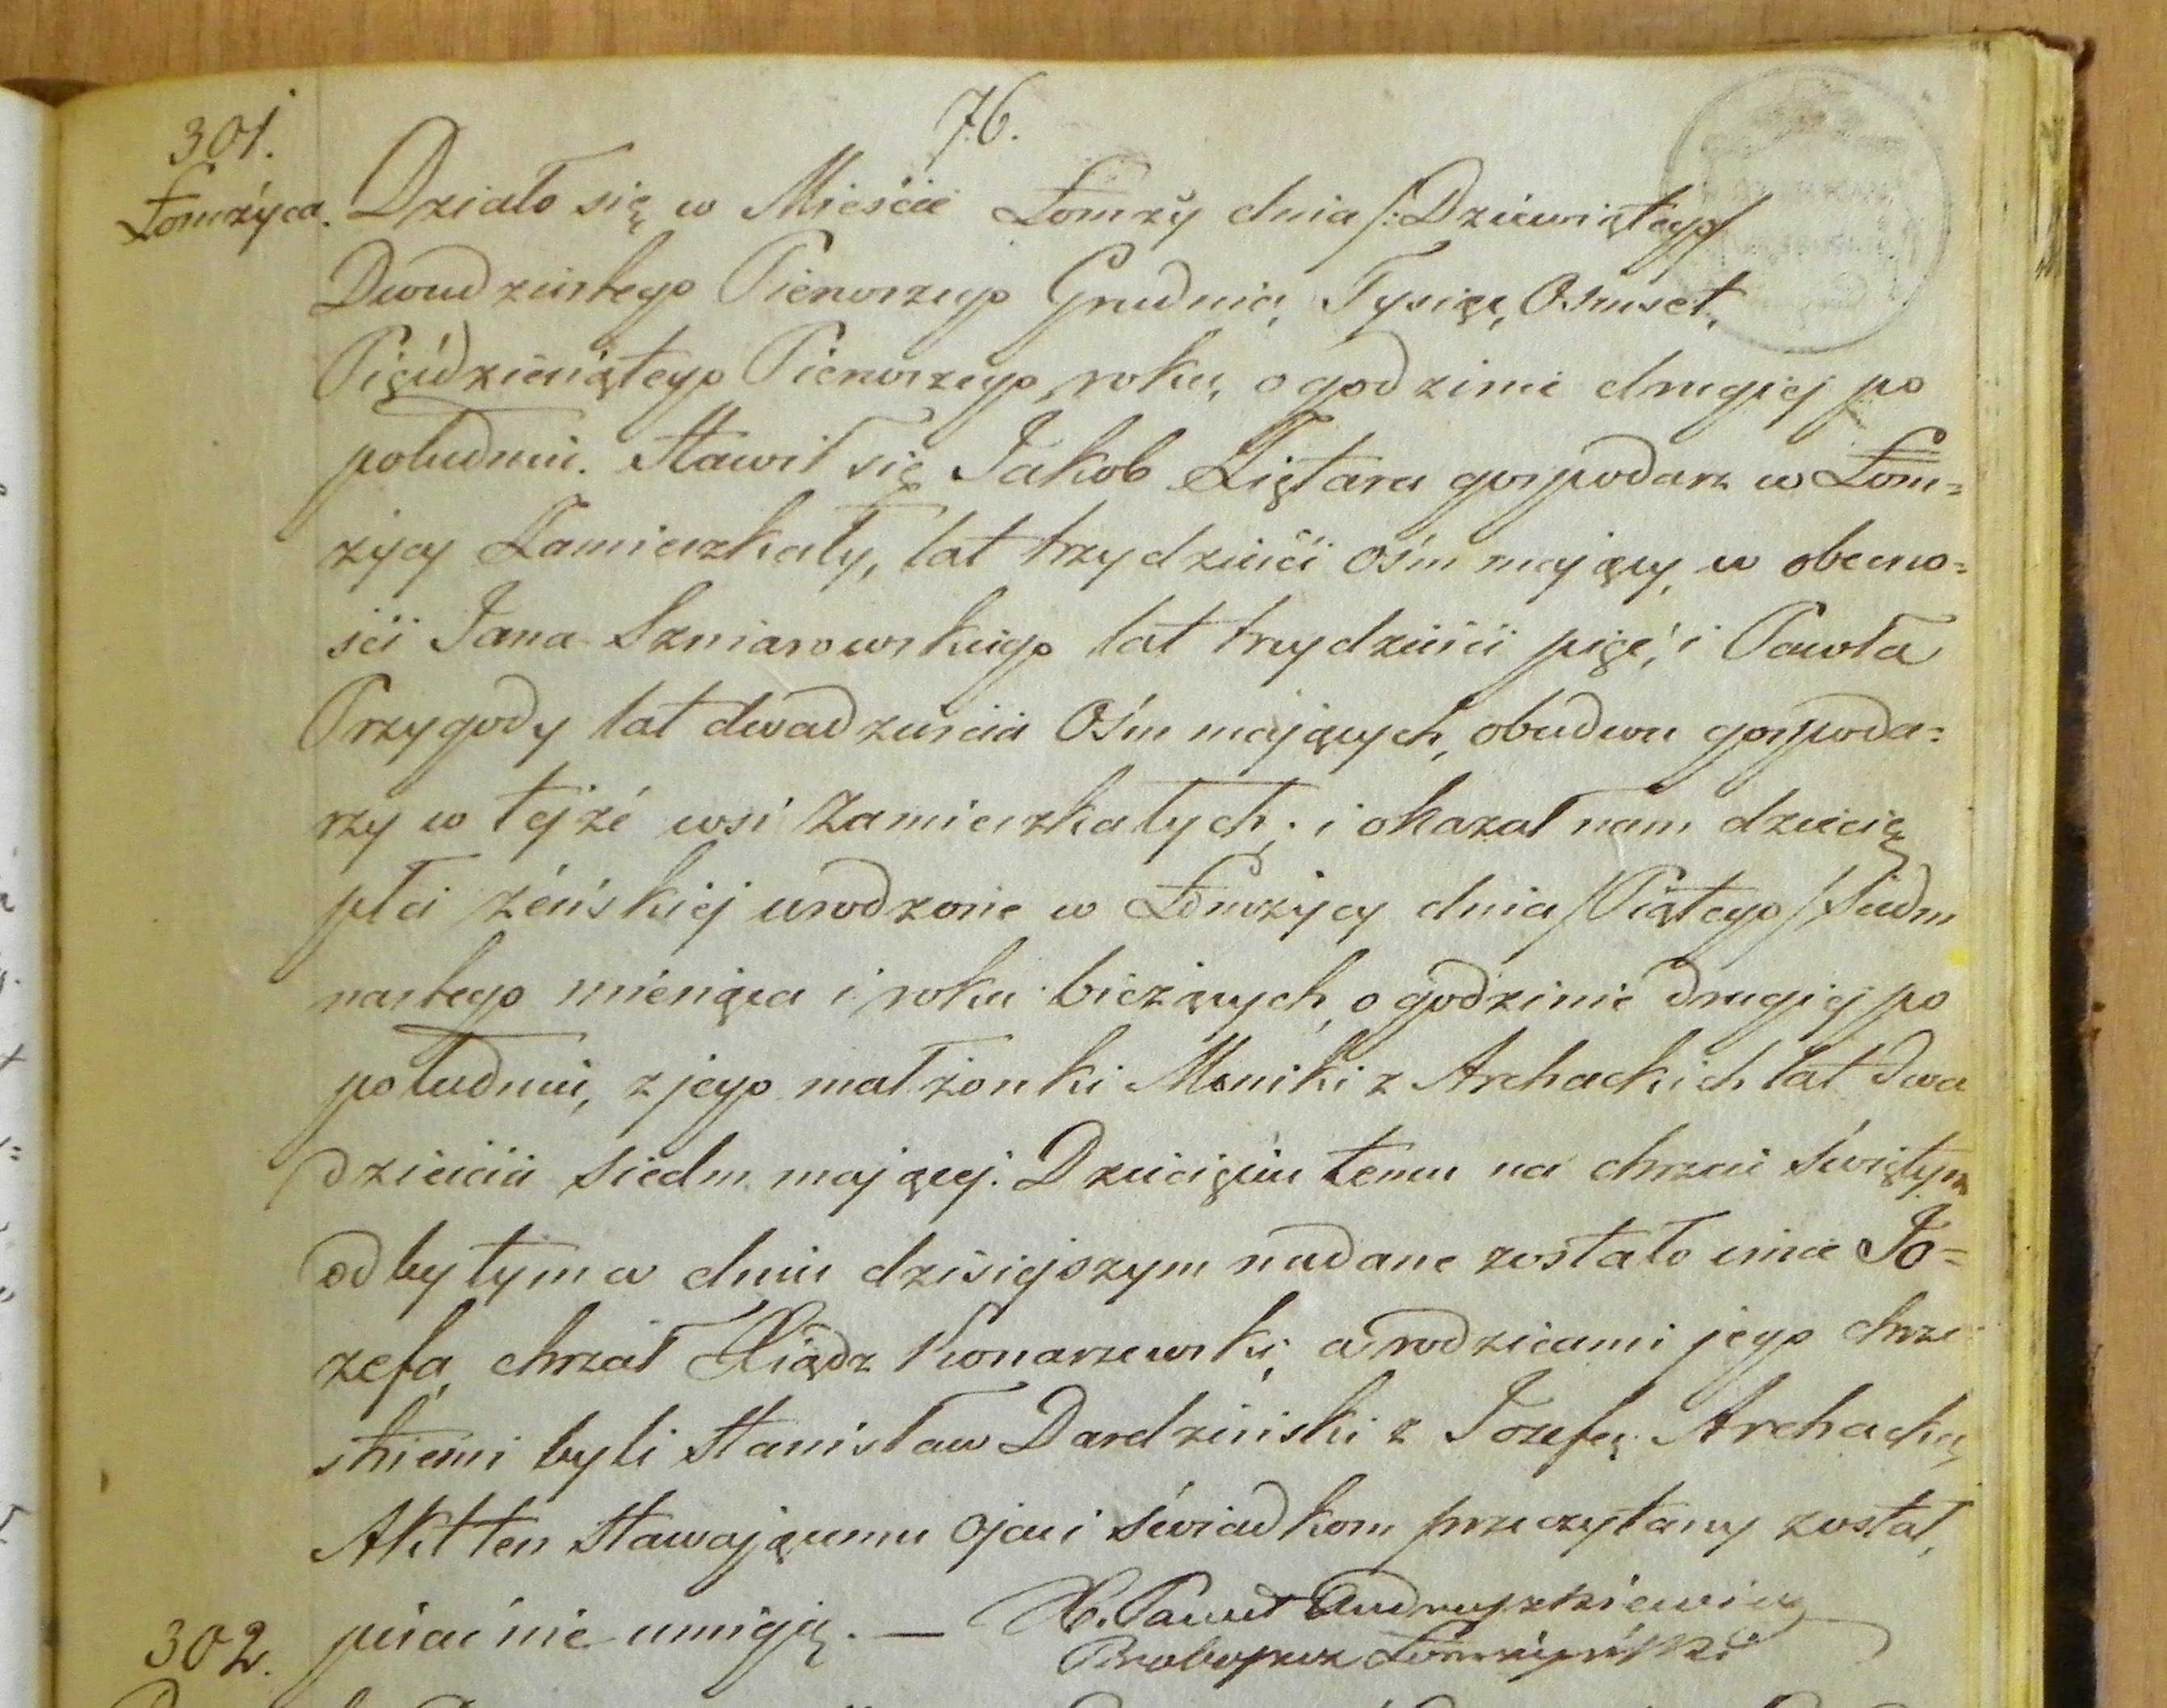 76.
301.
Łomżyca.
Działo się w Mieście Łomży dnia /:Dziewiątego/
Dwudziestego Pierwszego Grudnia, Tysiąc, Osmset,
Pięćdziesiątego Pierwszego, roku, o godzinie drugiej po
południu. Stawił się Jakob Ziętara gospodarz w Łom=
życy Zamieszkały, lat trzydzieści ośm mający, w obecno=
ści Jana Szniarowskiego lat trzydzieści pięć, i Pawła
Przygody lat dwadzieścia Ośm mających, obudwu gospoda=
rzy w tejże wsi Zamieszkałych; i okazał nam dziecię
płci żeńskiej urodzone w Łomżycy dnia /Piątego/ Siedm
nastego miesiąca i roku bieżących, o godzinie drugiej po
południu, z jego małżonki Moniki z Archackich lat dwa
dzieścia siedm mającej. Dziecięciu temu na chrzcie świętym
odbytym w dniu dzisiejszym nadane zostało imie Jo=
zefa, chrzał Xiądz Konarzewski, a rodzicami jego chrze
stnemi byli Stanisław Dardziński z Jozefą Archacką
Akt ten stawającemu Ojcu i świadkom przeczytany został,
pisać nie umieją. — X. Paweł Andruszkiewicz
Proboszcz Łomżyński
302.